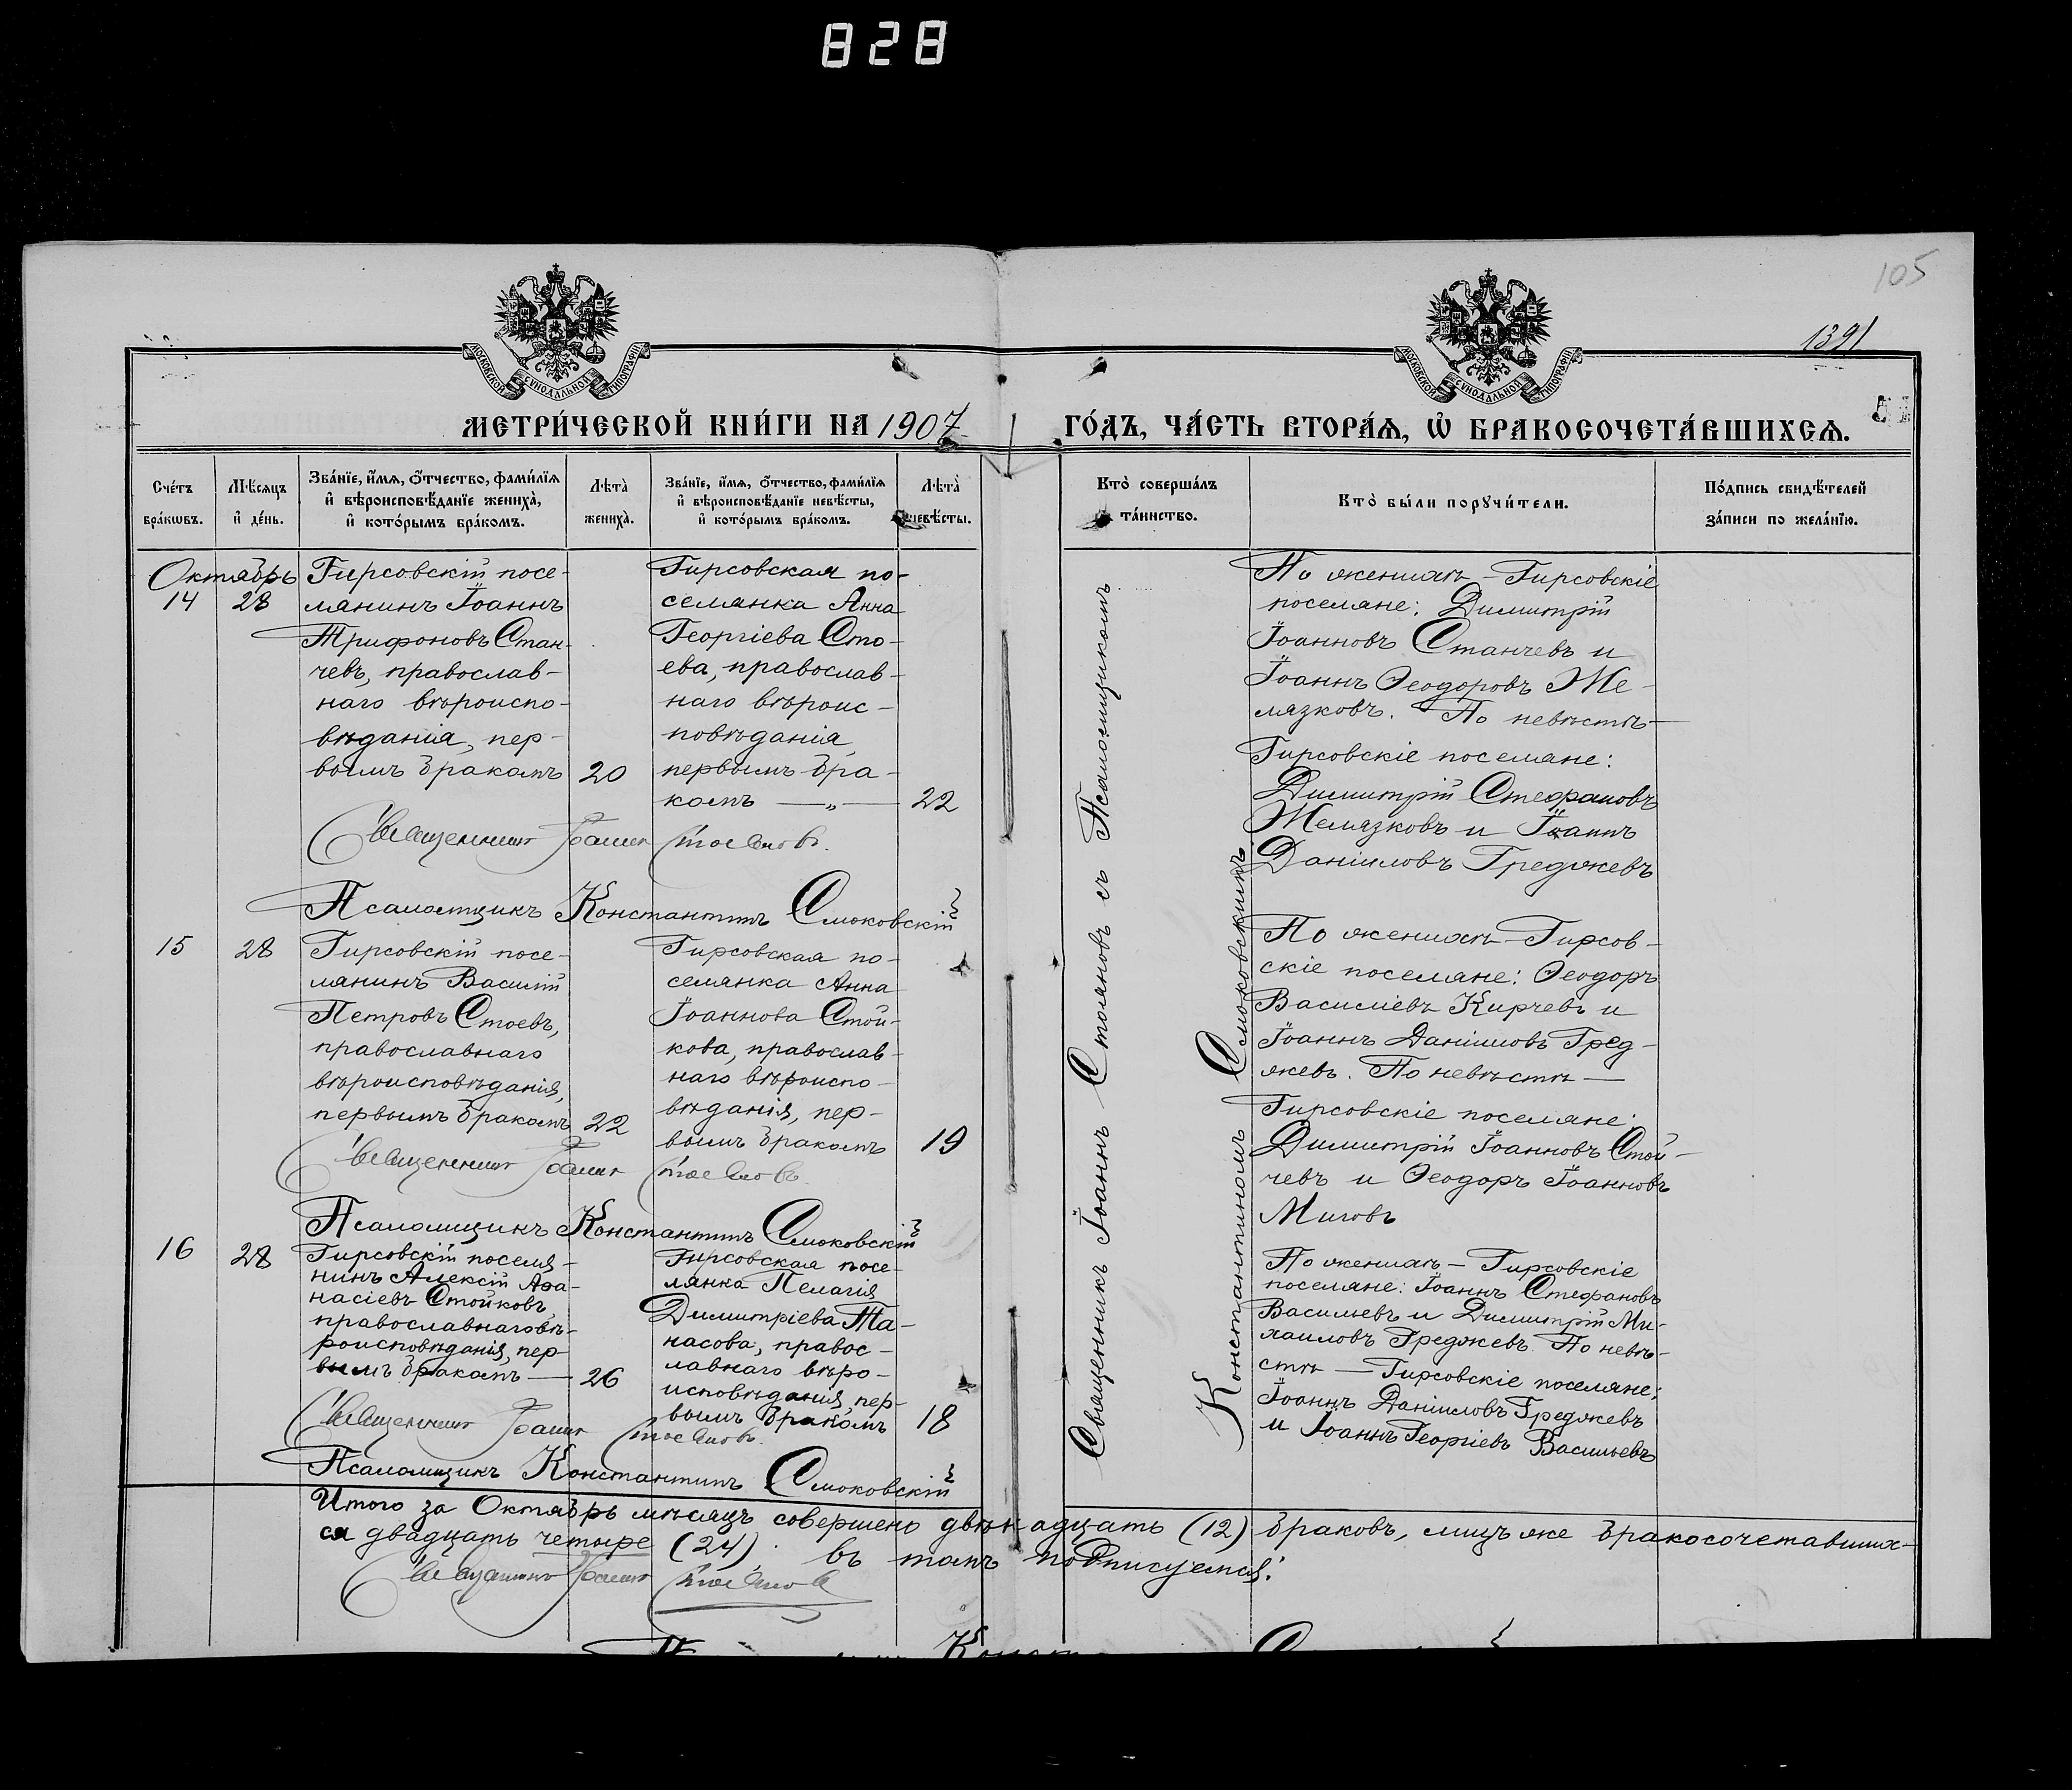 828
105
1391
МОСКОВСКОЙ СУНОДАЛЬНОЙ ТИПОГРАФІИ
МОСКОВСКОЙ СУНОДАЛЬНОЙ ТИПОГРАФІИ
МЕТРИ́ЧЕСКОЙ КНИ́ГИ НА 1907 ГО́ДЪ, ЧА́СТЬ ВТОРА́Ѧ, Ѡ҆ БРАКОСОЧЕТА́ВШИХСѦ.
Сче́тъ бра́кѡвъ.
Мѣ́сяцъ и҆ де́нь.
Зва́нїе, и҆́мѧ, ѻ҆́тчество, фами́лїѧ
и҆ вѣроисповѣ́данїе жениха̀,
и҆ кото́рымъ бра́комъ.
Лѣта̀ жениха̀.
Зва́нїе, и҆́мѧ, ѻ҆́тчество, фами́лїѧ
и҆ вѣроисповѣ́данїе невѣ́сты,
и҆ кото́рымъ бра́комъ.
Лѣта̀ невѣ́сты.
Кто̀ соверша́лъ
та́инство.
Кто̀ бы́ли порꙋчи́тели.
По́дпись свидѣ́телей
за́писи по жела́нїю.
Октябрь
14 28
Гирсовскій посе-
лянинъ Іоаннъ
Трифоновъ Стан-
чевъ, православ-
наго вѣроиспо-
вѣданія, пер-
вымъ бракомъ 20
Гирсовская по-
селянка Анна
Георгіева Сто-
ева, православ-
наго вѣроис-
повѣданія,
первымъ бра-
комъ — „ — 22
Священникъ Іоаннъ Стояновъ.
Псаломщикъ Константинъ Смоковскій
По женихѣ – Гирсовскіе
поселяне: Димитрій
Іоанновъ Станчевъ и
Іоаннъ Ѳеодоровъ Же-
лязковъ. По невѣстѣ —
Гирсовскіе поселяне:
Димитрій Стефановъ
Желязковъ и Іоаннъ
Даніиловъ Греджевъ
15 28
Гирсовскій посе-
лянинъ Василій
Петровъ Стоевъ,
православнаго
вѣроисповѣданія,
первымъ бракомъ 22
Гирсовская по-
селянка Анна
Іоаннова Стой-
кова, православ-
наго вѣроиспо-
вѣданія, пер-
вымъ бракомъ 19
Священникъ Іоаннъ Стояновъ.
Псаломщикъ Константинъ Смоковскій
По женихѣ – Гирсов-
скіе поселяне: Ѳеодоръ
Василіевъ Кирчевъ и
Іоаннъ Даніиловъ Гред-
жевъ. По невѣстѣ —
Гирсовскіе поселяне:
Димитрій Іоанновъ Стой-
чевъ и Ѳеодоръ Іоанновъ
Миговъ
16 28
Гирсовскій поселя-
нинъ Алексій Аѳа-
насіевъ Стойковъ,
православнаго вѣ-
роисповѣданія, пер-
вымъ бракомъ — 26
Гирсовская посе-
лянка Пелагія
Димитріева Та-
насова, правос-
лавнаго вѣро-
исповѣданія, пер-
вымъ бракомъ 18
Священникъ Іоаннъ Стояновъ.
Псаломщикъ Константинъ Смоковскій
По женихѣ – Гирсовскіе
поселяне: Іоаннъ Стефановъ
Васильевъ и Димитрій Ми-
хаиловъ Греджевъ. По невѣ-
стѣ — Гирсовскіе поселяне:
Іоаннъ Даніиловъ Греджевъ
и Іоаннъ Георгіевъ Васильевъ
Священникъ Іоаннъ Стояновъ съ Псаломщикомъ
Константиномъ Смоковскимъ.
Итого за Октябрь мѣсяцъ совершено двѣнадцать (12) браковъ, лицъ же бракосочетавших-
ся двадцать четыре (24). въ томъ подписуемся:
Священникъ Іоаннъ Стояновъ